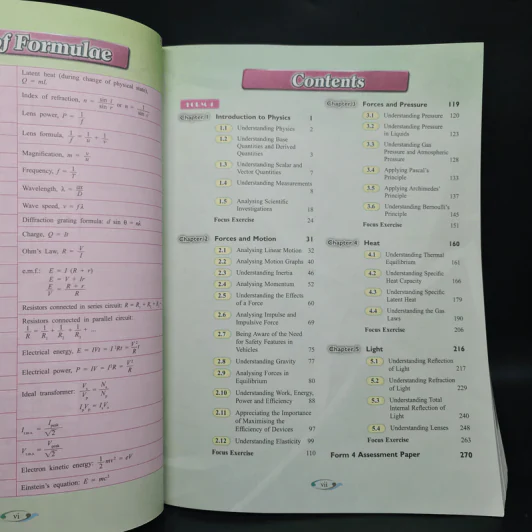 of Formulae
Latent heat (during change of physical state),
Q = mL
Index of refraction, n = sin i / sin r or n = 1 / sin c
Lens power, P = 1/f
Lens formula, 1/f = 1/u + 1/v
Magnification, m = v/u
Frequency, f = 1/T
Wavelength, λ = ax/D
Wave speed, v = fλ
Diffraction grating formula: d sin θ = nλ
Charge, Q = It
Ohm's Law, R = V/I
e.m.f.: E = I (R + r)
E = V + Ir
E/V = R + r / R
Resistors connected in series circuit: R = R₁ + R₂ + R₃
Resistors connected in parallel circuit:
1/R = 1/R₁ + 1/R₂ + 1/R₃ + ...
Electrical energy, E = IVt = I²Rt = V²t/R
Electrical power, P = IV = I²R = V²/R
Ideal transformer: Vs/Vp = Ns/Np
IpVp = IsVs
I r.m.s. = I peak / √2
V r.m.s. = V peak / √2
Electron kinetic energy: 1/2 mv² = eV
Einstein's equation: E = mc²
vi
Contents
FORM 4
Chapter 1 Introduction to Physics 1
1.1 Understanding Physics 2
1.2 Understanding Base
Quantities and Derived
Quantities 3
1.3 Understanding Scalar and
Vector Quantities 7
1.4 Understanding Measurements
8
1.5 Analysing Scientific
Investigations 18
Focus Exercise 24
Chapter 2 Forces and Motion 31
2.1 Analysing Linear Motion 32
2.2 Analysing Motion Graphs 40
2.3 Understanding Inertia 46
2.4 Analysing Momentum 52
2.5 Understanding the Effects
of a Force 60
2.6 Analysing Impulse and
Impulsive Force 69
2.7 Being Aware of the Need
for Safety Features in
Vehicles 75
2.8 Understanding Gravity 77
2.9 Analysing Forces in
Equilibrium 80
2.10 Understanding Work, Energy,
Power and Efficiency 88
2.11 Appreciating the Importance
of Maximising the
Efficiency of Devices 97
2.12 Understanding Elasticity 99
Focus Exercise 110
Chapter 3 Forces and Pressure 119
3.1 Understanding Pressure 120
3.2 Understanding Pressure
in Liquids 123
3.3 Understanding Gas
Pressure and Atmospheric
Pressure 128
3.4 Applying Pascal's
Principle 133
3.5 Applying Archimedes'
Principle 137
3.6 Understanding Bernoulli's
Principle 145
Focus Exercise 151
Chapter 4 Heat 160
4.1 Understanding Thermal
Equilibrium 161
4.2 Understanding Specific
Heat Capacity 166
4.3 Understanding Specific
Latent Heat 179
4.4 Understanding the Gas
Laws 190
Focus Exercise 206
Chapter 5 Light 216
5.1 Understanding Reflection
of Light 217
5.2 Understanding Refraction
of Light 229
5.3 Understanding Total
Internal Reflection of
Light 240
5.4 Understanding Lenses 248
Focus Exercise 263
Form 4 Assessment Paper 270
vii